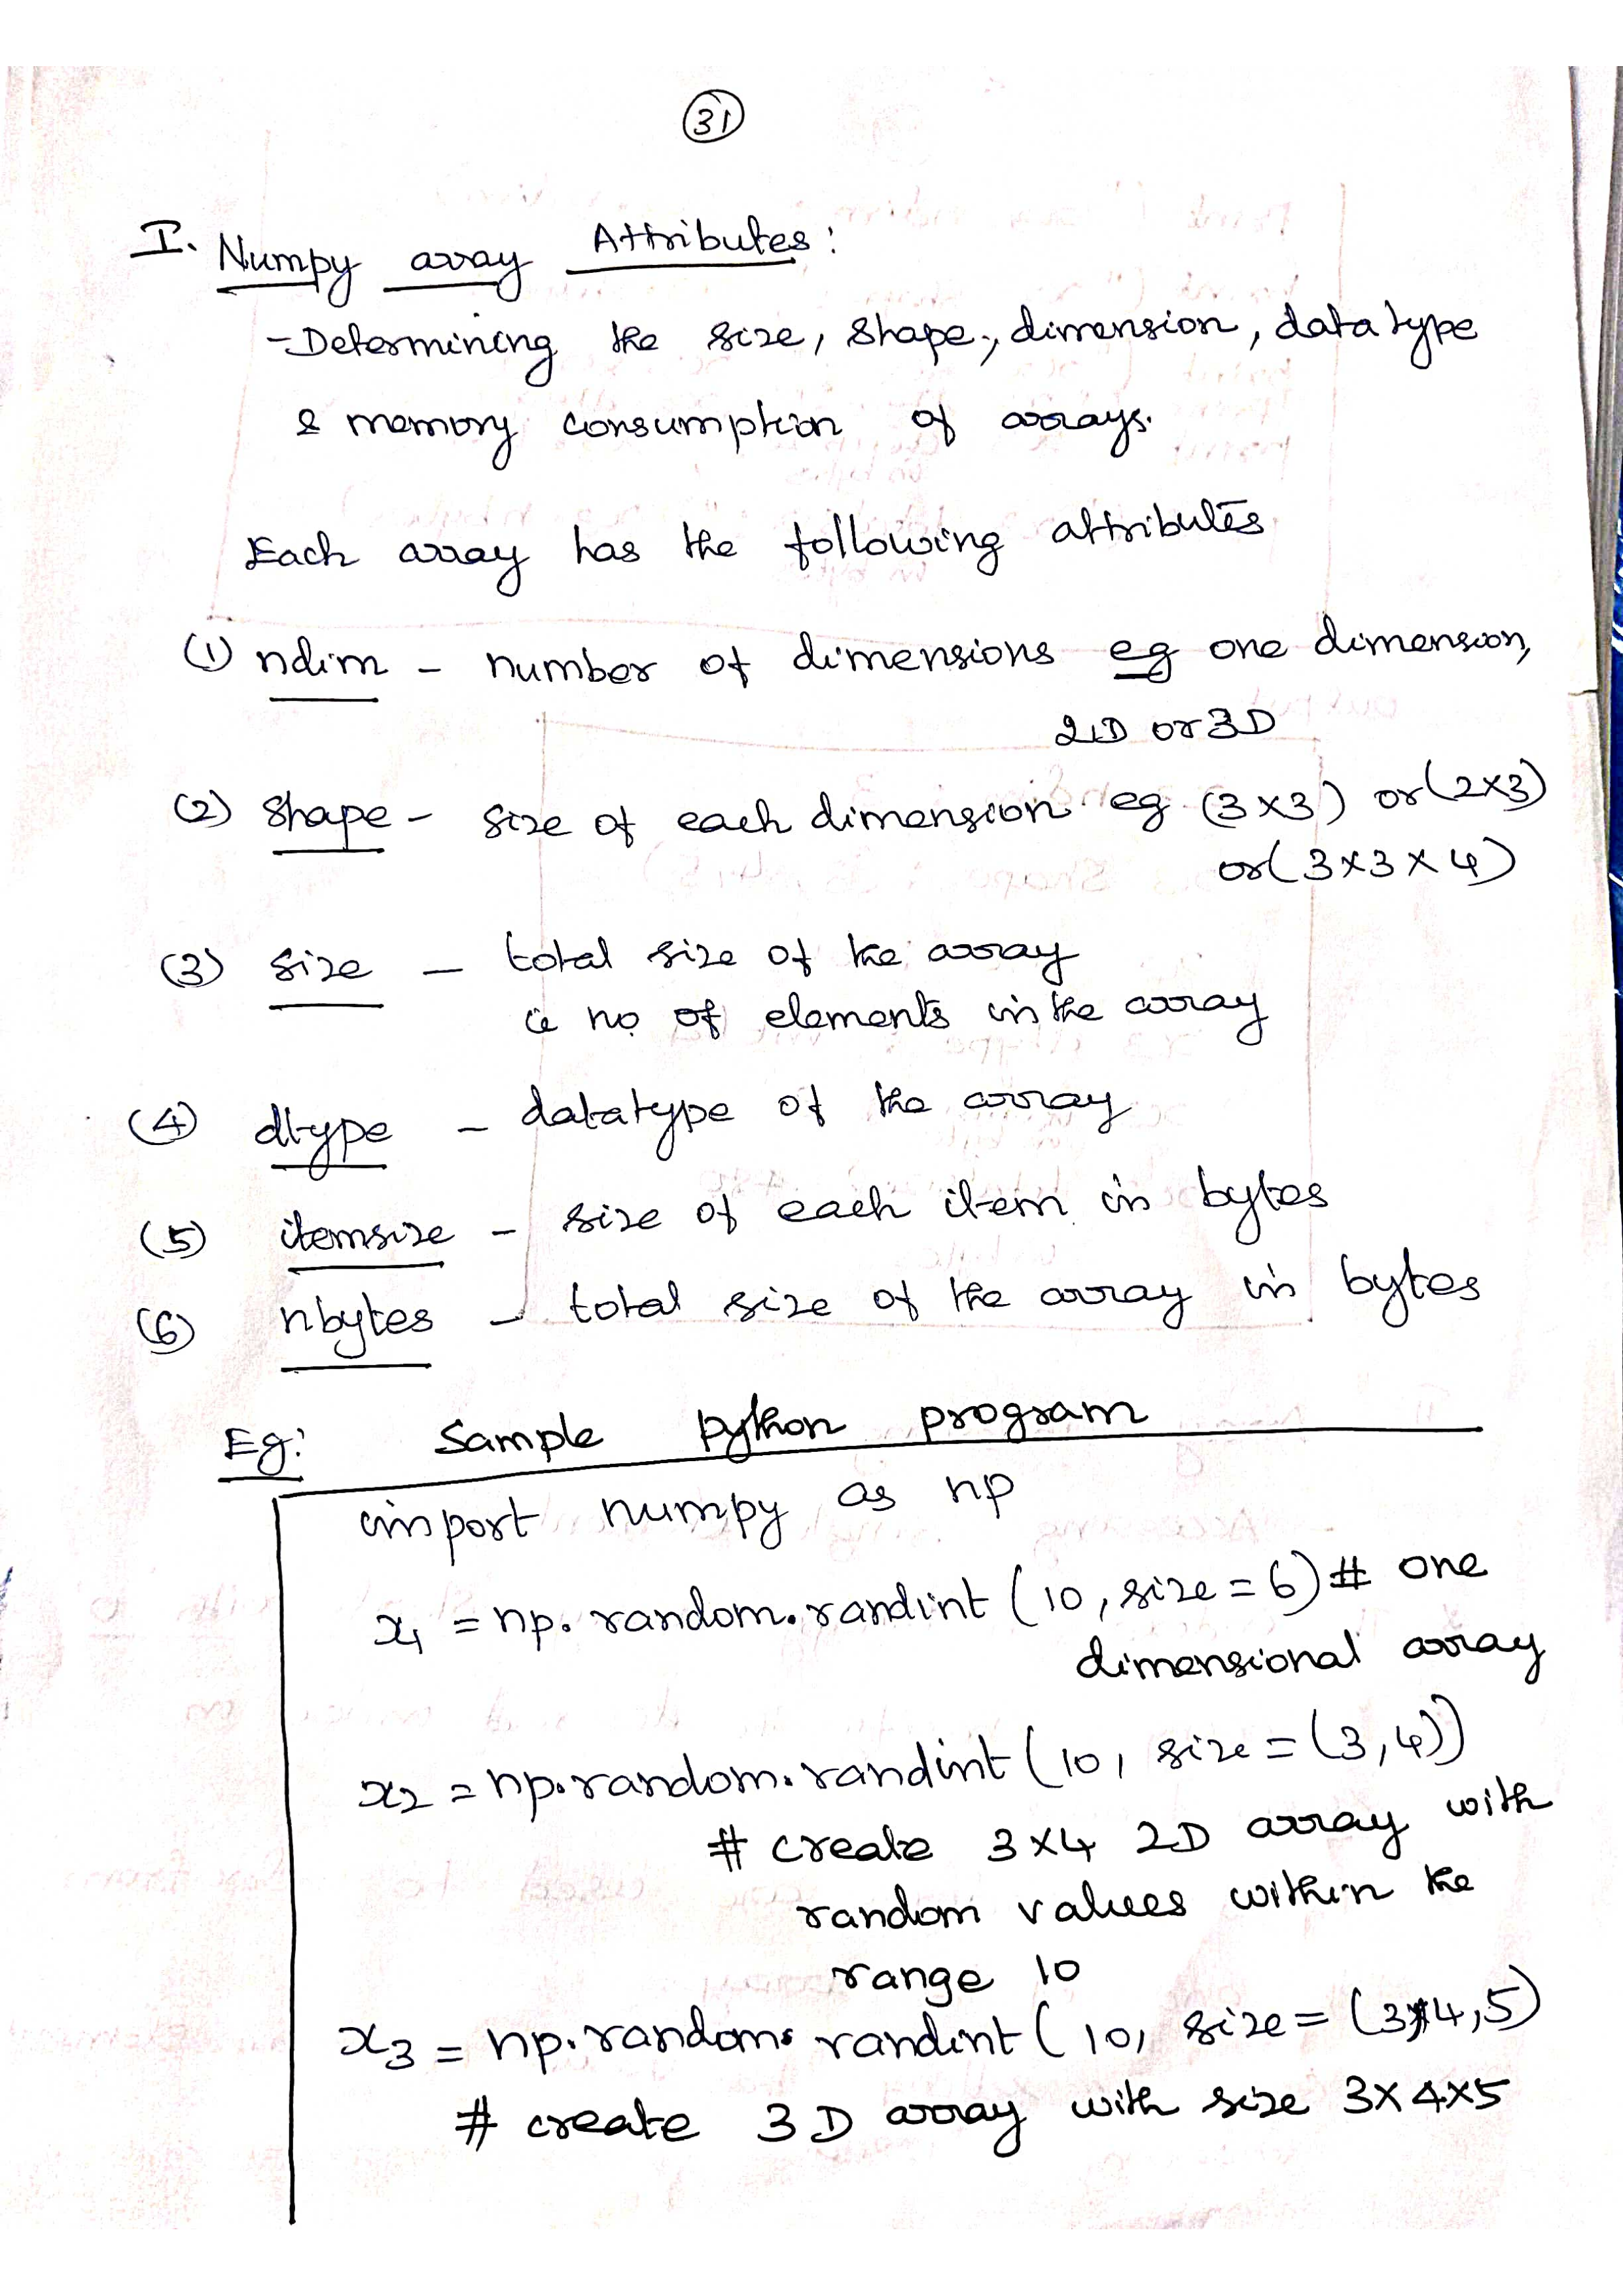 31
I. Numpy array Attributes:
- Determining the size, shape, dimension, datatype
& memory consumption of arrays.
Each array has the following attributes
(1) ndim - number of dimensions eg one dimension,
2D or 3D
(2) shape - size of each dimension eg (3x3) or (2x3)
or (3x3x4)
(3) size - total size of the array
ie no of elements in the array
(4) dtype - datatype of the array
(5) itemsize - size of each item in bytes
(6) nbytes - total size of the array in bytes
Eg: Sample python program
import numpy as np
x1 = np.random.randint (10, size = 6) # one
dimensional array
x2 = np.random.randint (10, size = (3,4))
# create 3x4 2D array with
random values within the
range 10
x3 = np.random.randint (10, size = (3,4,5)
# create 3D array with size 3x4x5